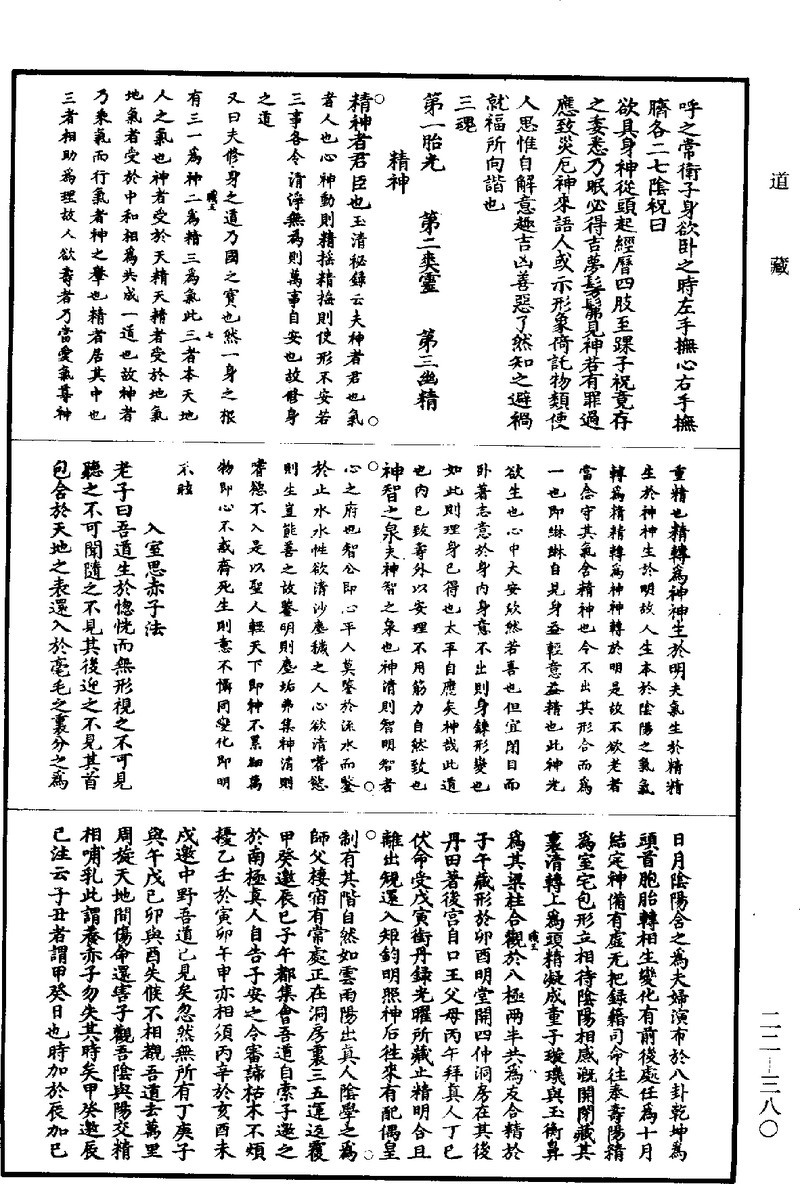 道藏
呼之常衛子身欲卧之時左手撫心右手撫
臍各二七陰祝曰
欲具身神從頭起經曆四肢至踝子祝竟存
之委悉乃眠必得吉夢髣髴見神若有罪過
應致災厄神來語人或示形象倚託物類使
人思惟自解意趣吉凶善惡了然知之避禍
就福所向諧也
三魂
第一胎光 第二爽靈 第三幽精
精神
精神者君臣也玉清秘録云夫神者君也氣
者人也心神動則精搖精搖則使形不安若
三事各令清淨無為則萬事自安也故修身
之道
又曰夫修身之道乃國之寶也然一身之根
有三一為神二為精三為氣此三者本天地
人之氣也神者受於天精天精者受於地氣
地氣者受於中和相為共成一道也故神者
乃乘氣而行氣者神之轝也精者居其中也
三者相助為理故人欲壽者乃當愛氣尊神
重精也精轉為神神生於明夫氣生於精精
生於神神生於明故人生本於陰陽之氣氣
轉為精精轉為神神轉於明是故不欲老者
當念守其氣含精神也令不出其形合而為
一也即綝綝自見身益輕意益精也此神光
欲生也心中大安欣然若喜也但宜閉目而
卧著志意於身内身意不出則身鍊形變也
如此則理身已得也太平自應矣神哉此道
也内已致壽外以安理不用筋力自然致也
神智之泉夫神智之泉也神清則智明智者
心之府也智公即心平人莫鑒於流水而鑒
於止水水性欲清沙塵穢之人心欲清嗜慾
則生豈能善之故鑒明則塵垢弗集神清則
嗜慾不入是以聖人輕天下即神不累細萬
物即心不惑齊死生則意不懾同變化即明
不眩
入室思赤子法
老子曰吾道生於惚恍而無形視之不可見
聽之不可聞隨之不見其後迎之不見其首
包含於天地之表還入於毫毛之裏分之為
日月陰陽含之為夫婦演布於八卦乾坤為
頭首胞胎轉相生變化有前後處任為十月
結定神備有虛无把録籍司命往奉壽陽精
為室宅包形立相待陰陽相感溉開閉藏其
裏清轉上為頭精凝成童子璇璣與玉衡鼻
為其梁柱合觀於八極兩半共為友合精於
子午藏形於卯酉明堂開四仲洞房在其後
丹田著後宮自口王父母丙午拜真人丁巳
伏命受戊寅銜丹録光曜所藏止精明合且
離出規還入矩鈞明照神后往來有配偶皇
制有其階自然如雲雨陽出真人陰學之為
師父棲宿有常處正在洞房裏三五運返覆
甲癸邀辰巳子午都集會吾道自索子邀之
於南極真人自告子安之令審諦枯木不煩
擾乙壬於寅卯午申亦相須丙辛於亥酉未
戌邀中野吾道已見矣忽然無所有丁庚子
與午戊己卯與酉失候不相覩吾道去萬里
周旋天地間傷命還害子觀吾陰與陽交精
相哺乳此謂養赤子勿失其時矣甲癸邀辰
巳注云子丑者謂甲癸日也時加於辰加巳
二二—三八〇